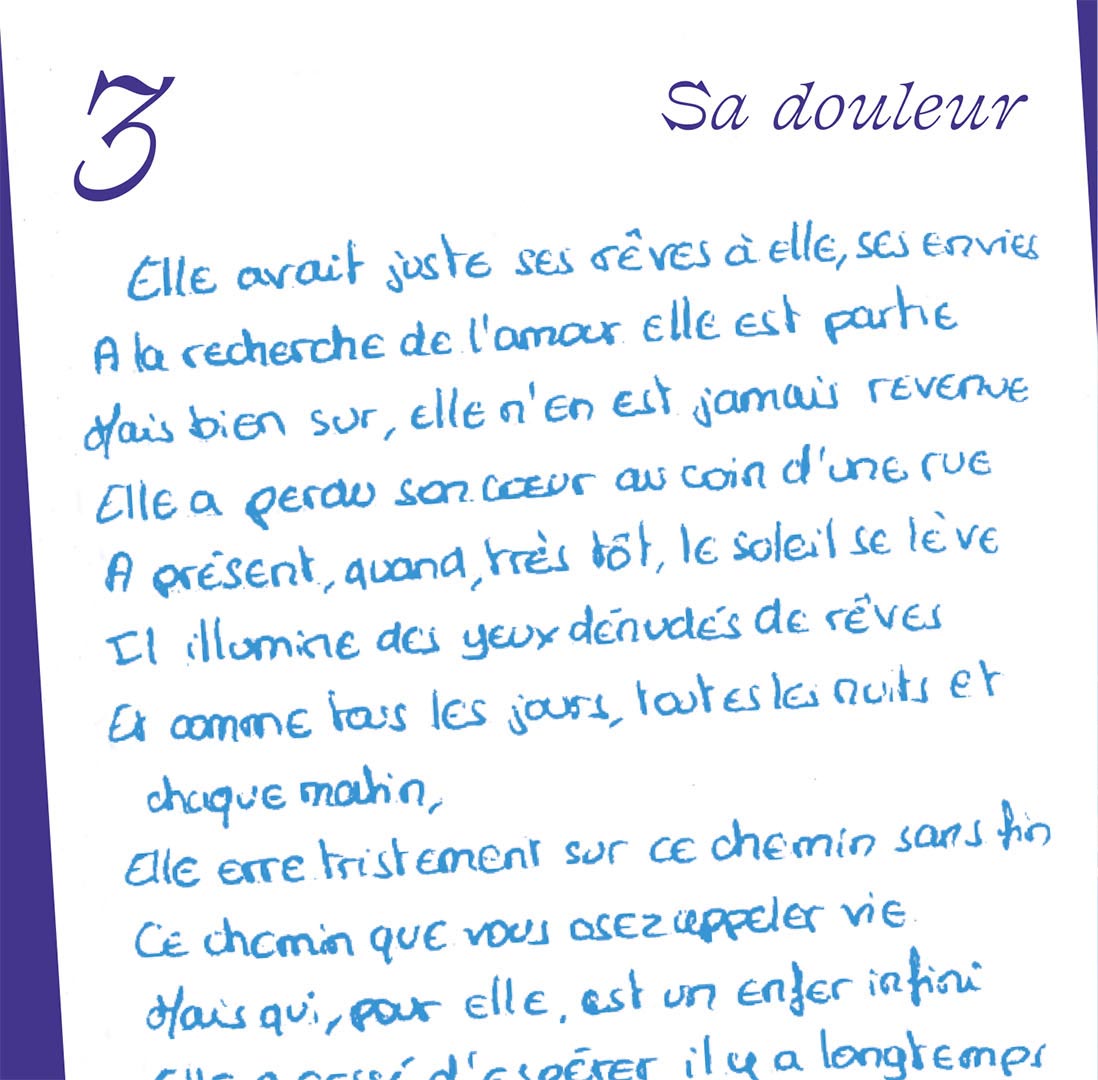 3
Sa douleur
Elle avait juste ses rêves à elle, ses envies
A la recherche de l'amour elle est partie
Mais bien sur, elle n'en est jamais revenue
Elle a perdu son cœur au coin d'une rue
A présent, quand, très tôt, le soleil se lève
Il illumine des yeux dénudés de rêves
Et comme tous les jours, toutes les nuits et
chaque matin,
Elle erre tristement sur ce chemin sans fin
Ce chemin que vous osez appeler vie
Mais qui, pour elle, est un enfer infini
Elle a cessé d'espérer il y a longtemps